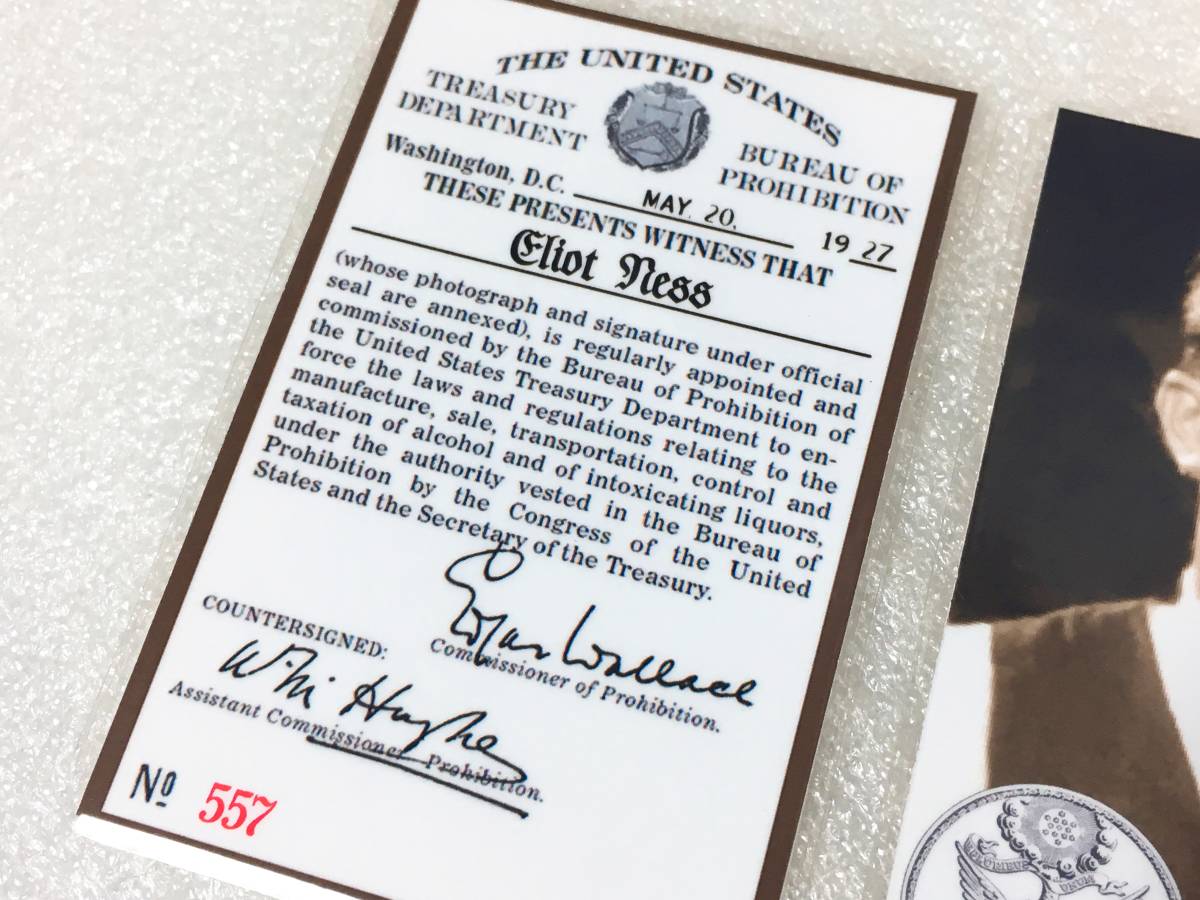 THE UNITED STATES
TREASURY
DEPARTMENT
BUREAU OF
PROHIBITION
Washington, D.C. MAY 20, 1927
THESE PRESENTS WITNESS THAT
Eliot Ness
(whose photograph and signature under official
seal are annexed), is regularly appointed and
commissioned by the Bureau of Prohibition of
the United States Treasury Department to en-
force the laws and regulations relating to the
manufacture, sale, transportation, control and
taxation of alcohol and of intoxicating liquors,
under the authority vested in the Bureau of
Prohibition by the Congress of the United
States and the Secretary of the Treasury.
Edgar Wallace
Commissioner of Prohibition.
COUNTERSIGNED:
Assistant Commissioner Prohibition.
Nº 557